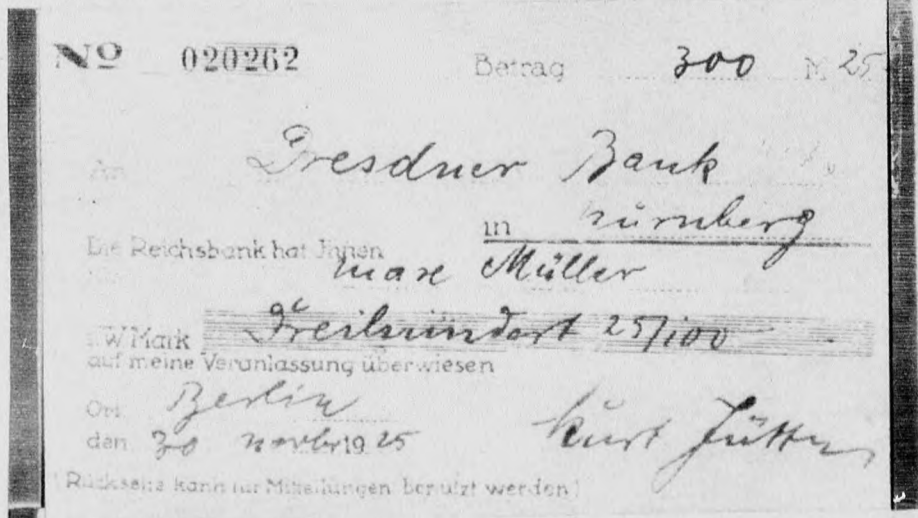 No 020262 Betrag 300 M 25
An Dresdner Bank
in Nürnberg
Die Reichsbank hat Ihnen
Max Müller
i.W. Mark Dreihundert 25/100
auf meine Veranlassung überwiesen
Ort Berlin
den 30 Novbr 1925 Kurt
(Rückseite kann für Mitteilungen benutzt werden)